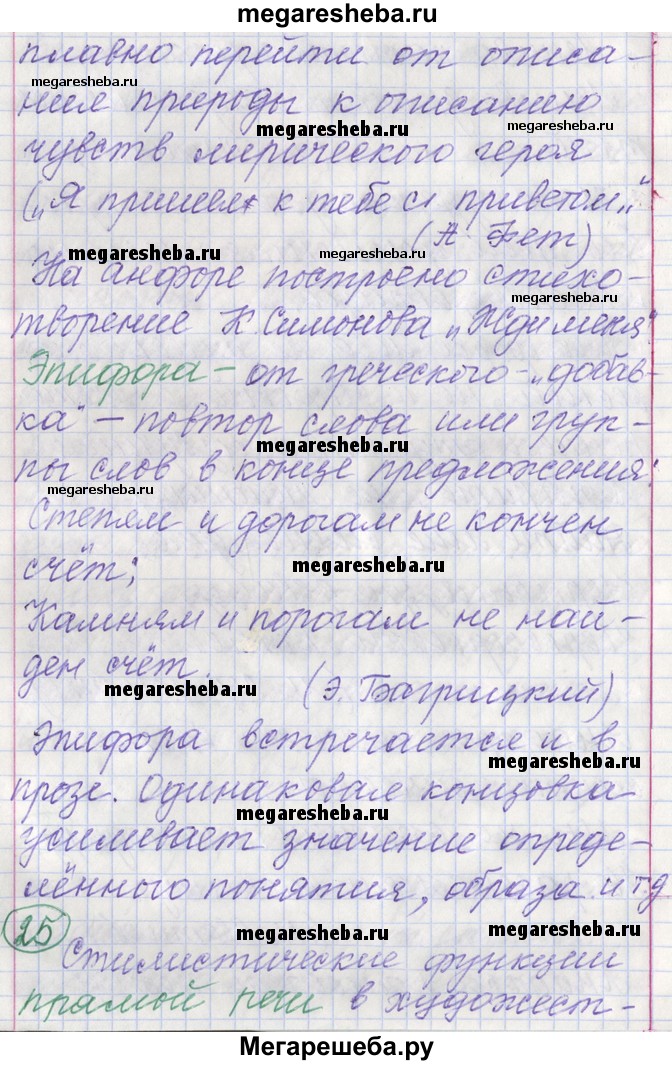 megaresheba.ru
плавно перейти от описа-
megaresheba.ru
ния природы к описанию
megaresheba.ru megaresheba.ru
чувств лирического героя
("Я пришел к тебе с приветом..."
(А. Фет)
megaresheba.ru
На анафоре построено стихо-
megaresheba.ru
творение К. Симонова "Жди меня"
Эпифора - от греческого - "добав-
ка" - повтор слова или груп-
megaresheba.ru
пы слов в конце предложения:
megaresheba.ru
Степям и дорогам не кончен
счёт;
megaresheba.ru
Камням и порогам не най-
ден счёт.
megaresheba.ru
(Э. Багрицкий)
Эпифора встречается и в
megaresheba.ru
прозе. Одинаковая концовка
megaresheba.ru
усиливает значение опреде-
лённого понятия, образа и т.д
25
megaresheba.ru
Стилистические функции
megaresheba.ru
прямой речи в художест-
Мегарешеба.ру